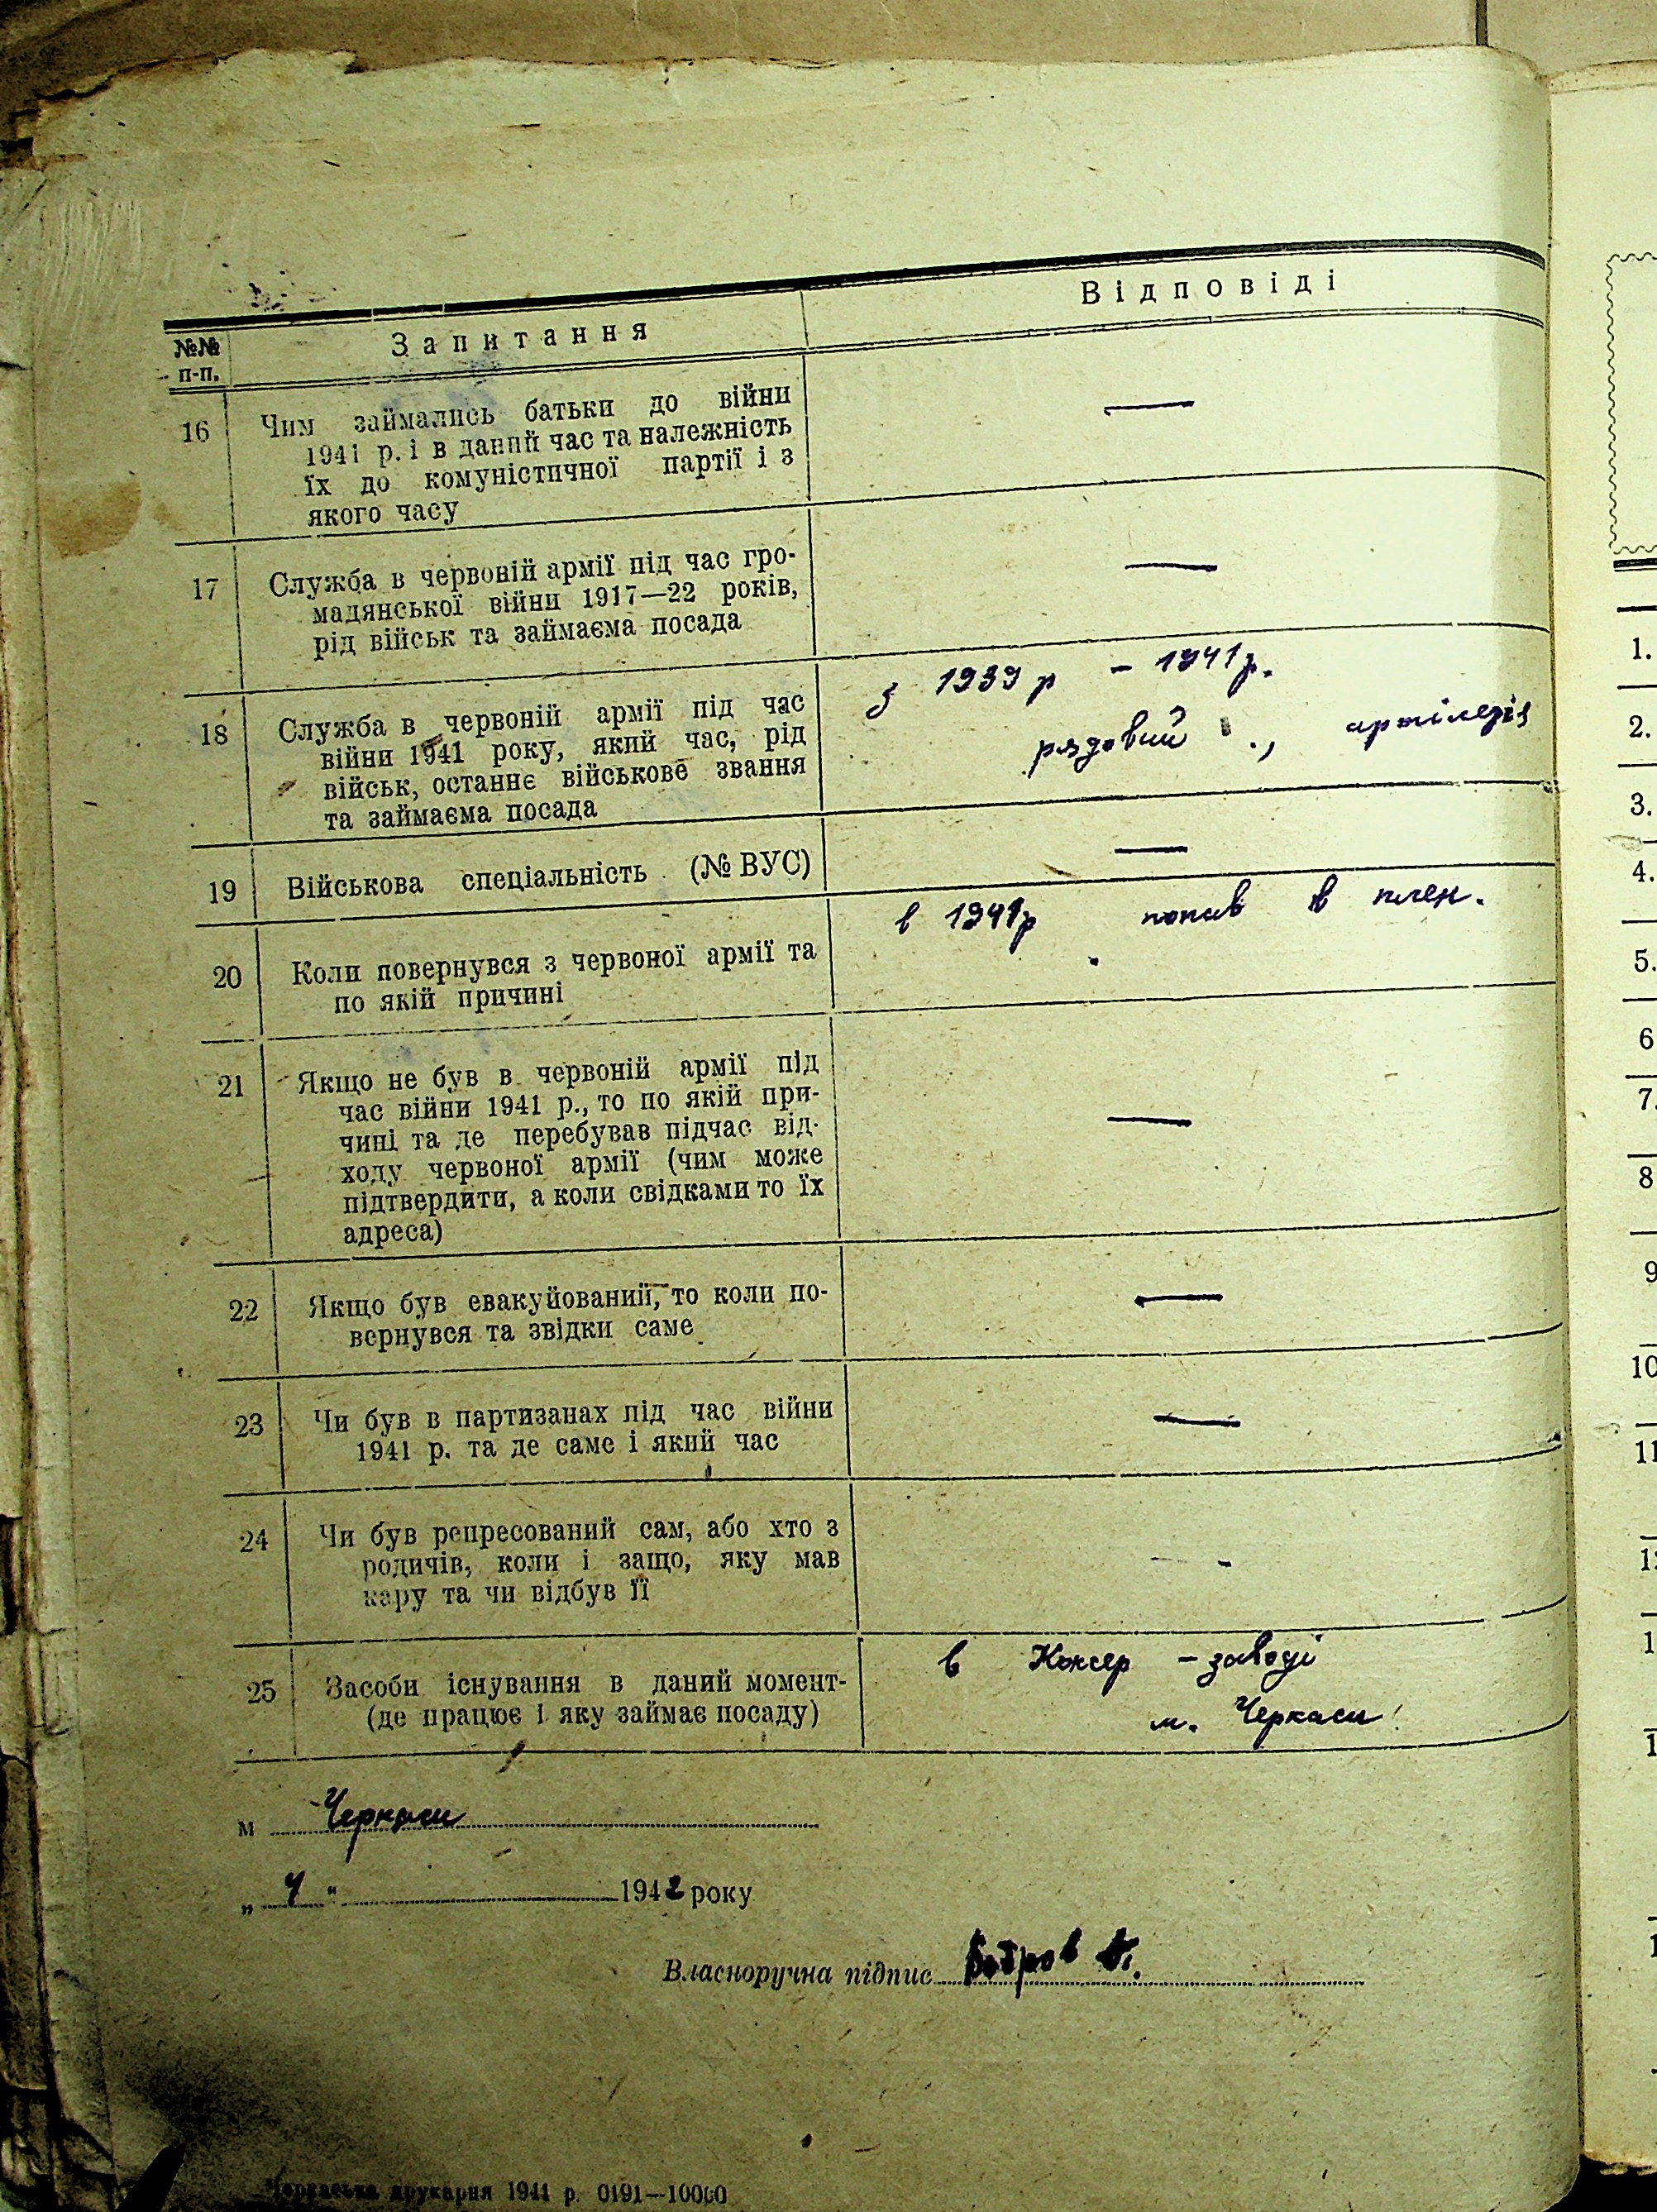 №№
п-п.
Запитання
Відповіді
16
Чим займались батьки до війни
1941 р. і в даний час та належність
їх до комуністичної партії і з
якого часу
—
17
Служба в червоній армії під час гро-
мадянської війни 1917—22 років,
рід військ та займаєма посада
—
18
Служба в червоній армії під час
війни 1941 року, який час, рід
військ, останнє військове звання
та займаєма посада
з 1939 р – 1941 р.
рядовий ., артілерія
19
Військова спеціальність (№ ВУС)
—
20
Коли повернувся з червоної армії та
по якій причині
в 1941р попав в плен.
21
Якщо не був в червоній армії під
час війни 1941 р., то по якій при-
чині та де перебував підчас від-
ходу червоної армії (чим може
підтвердити, а коли свідками то їх
адреса)
—
22
Якщо був евакуйований, то коли по-
вернувся та звідки саме
—
23
Чи був в партизанах під час війни
1941 р. та де саме і який час
—
24
Чи був репресований сам, або хто з
родичів, коли і защо, яку мав
кару та чи відбув її
-
25
Засоби існування в даний момент-
(де працює і яку займає посаду)
в Консер – заводі
м. Черкаси
м Черкаси
„ 4 " 1942 року
Власноручна підпис
Черкаська друкарня 1941 р. 0191—10000
1.
2.
3.
4.
5.
6
7.
8
9
10
11